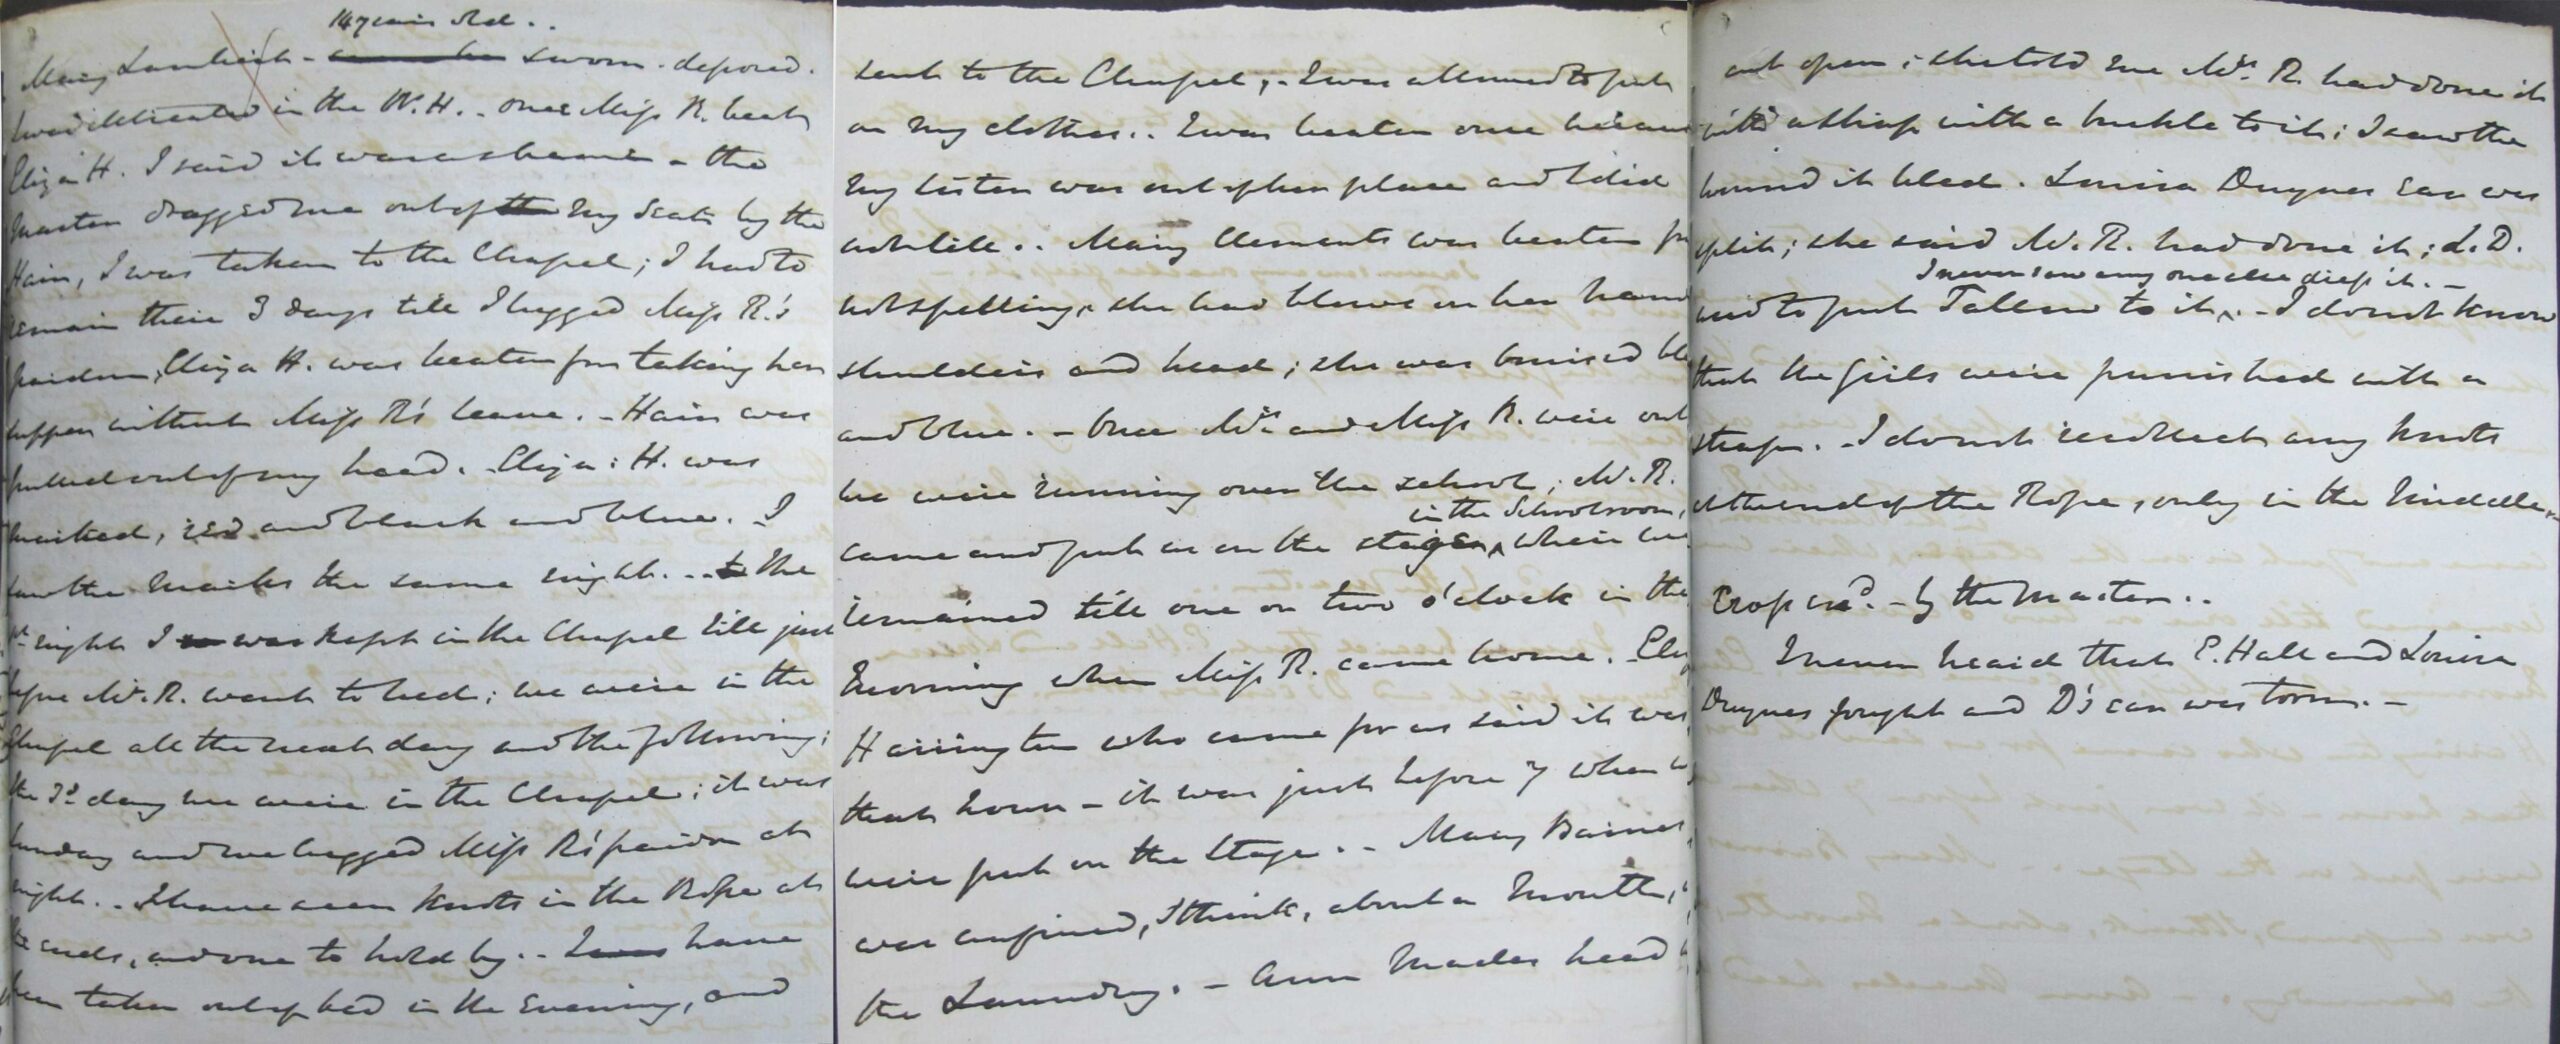 14 years old..
Mary Lambeth - sworn. deposed.
I was illtreated in the W.H. - once Miss R. beat
Eliza H. I said it was a shame - the
Master dragged me out of the my seat by the
Hair, I was taken to the Chapel; I had to
remain there 3 days till I begged Miss R.'s
pardon, Eliza H. was beaten for taking her
supper without Miss R's leave. - Hair was
pulled out of my head. - Eliza: H. was
marked, red and black and blue. I
saw the marks the same night. .. to the
1st night I was kept in the Chapel till just
before Mr. R. went to bed; we were in the
Chapel all the next day and the following;
the 3d day we were in the Chapel; it was
Sunday and we begged Miss R's pardon at
night. .. I have seen knots in the Rope at
the ends, and one to hold by. .. I was have
been taken out of bed in the Evening, and
sent to the Chapel; - I was allowed to put
on my clothes.. I was beaten once because
my sister was out of her place and I did
not tell.. Mary Clements was beaten for
not spelling, she had blows on her hand
shoulders and head; she was bruised
and blue. - Once Mrs. and Miss R. were out
we were running over the school; Mr. R.
in the Schoolroom,
came and put us on the stage, where we
remained till one or two o'clock in the
Morning when Miss R. came home.
Harrington who came for us said it was
that hour - it was just before 7 when
were put on the Stage. .- Mary Barnes
was confined, I think, about a Month,
the Laundry. - Ann Mades head
cut open; she told me Mrs. R. had done it
with a strap with a buckle to it; I saw the
wound it bled. Louisa Dugnes Ear was
split; she said Mr. R. had done it; L.D.
I never saw any one else dress it. -
used to put Tallow to it. - I do not know
that the Girls were punished with a
strap. - I do not recollect any knots
at the end of the Rope, only in the Middle.
Cross exd. - by the Master..
I never heard that E. Hall and Louisa
Dugnes fought and D's ear was torn. -